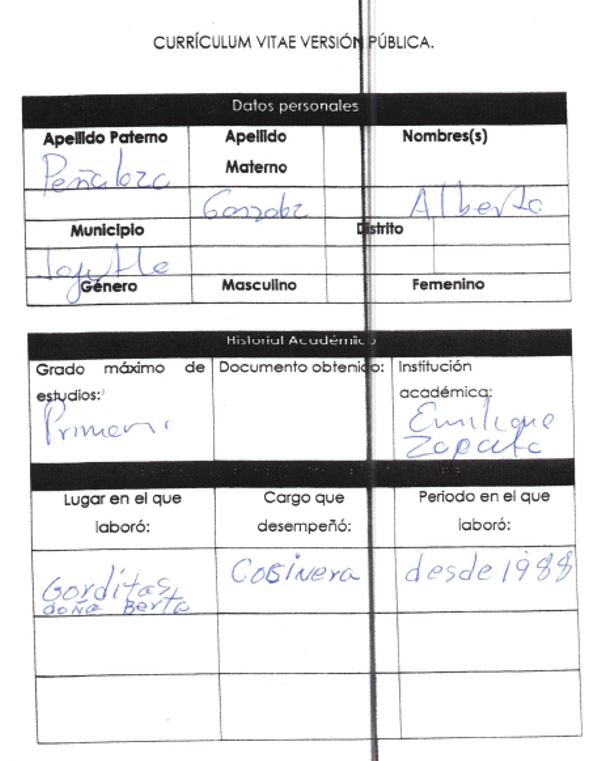 CURRÍCULUM VITAE VERSIÓN PÚBLICA.
Datos personales
Apellido Paterno Apellido Materno Nombres(s)
Peñaloza Gonzalez Alberta
Municipio Distrito
Jojutle
Género Masculino Femenino
Historial Académico
Grado máximo de estudios: Documento obtenido: Institución académica:
Primari Emiliano
Zapata
Lugar en el que laboró: Cargo que desempeñó: Periodo en el que laboró:
Gorditas COSiNera desde 1988
doña Berta